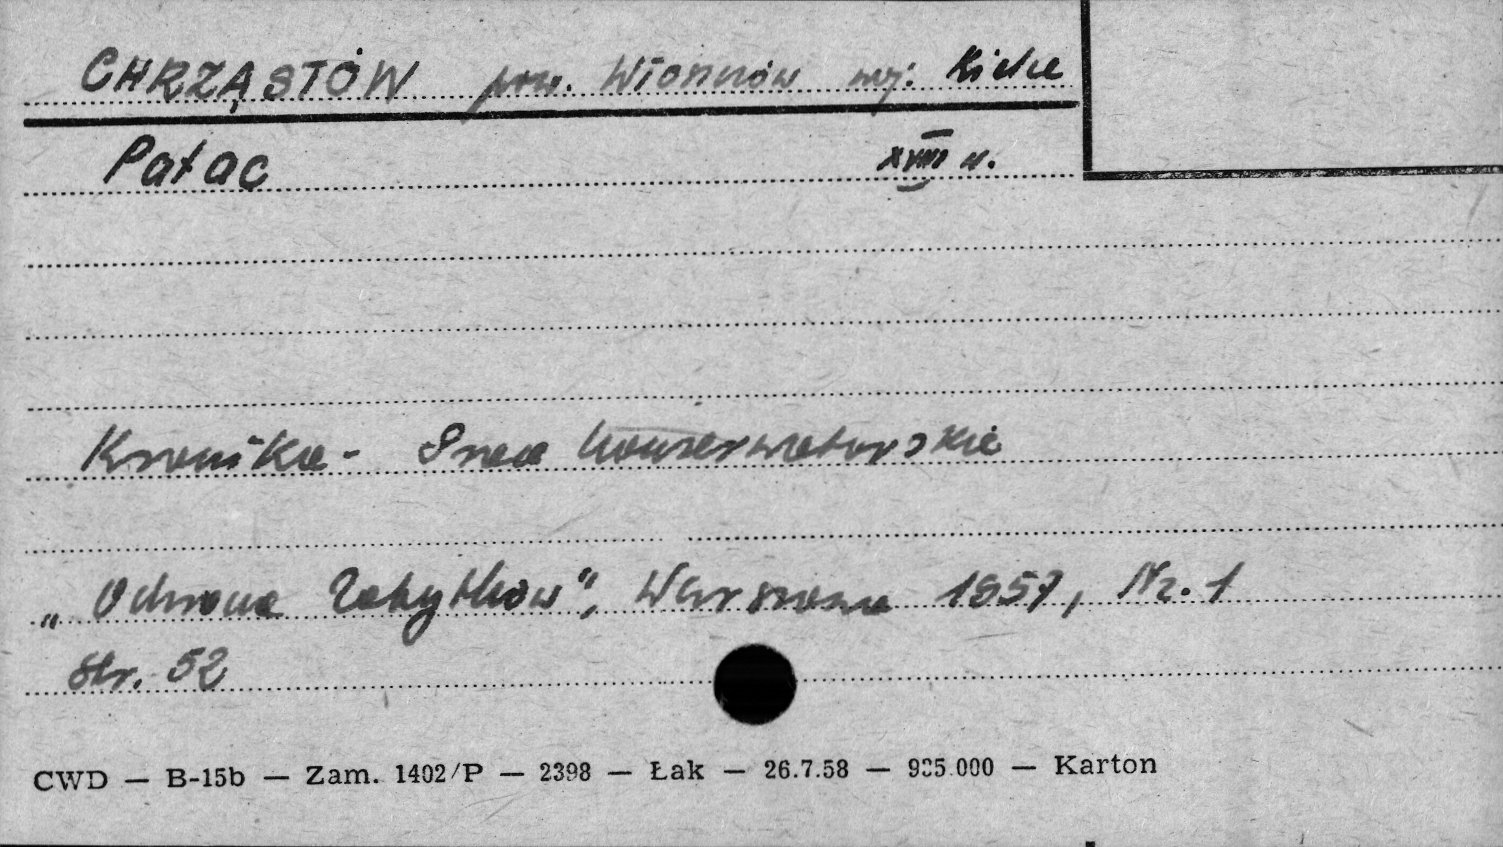 CHRZĄSTÓW pow. Włoszczów woj: Kielce
Pałac XVIII w.
Kronika - Prace konserwatorskie
„Ochrona Zabytków", Warszawa 1957, Nr. 1
Str. 52
CWD — B-15b — Zam. 1402/P — 2398 — Łak — 26.7.58 — 935.000 — Karton